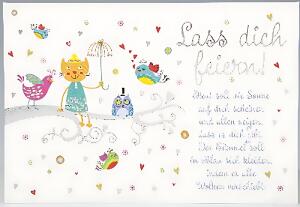 Lass dich
feiern!
Heut soll die Sonne
auf dich scheinen
und allen zeigen.
Lass es dich
Der Himmel soll
in sich kleiden.
Indem er alle
Wolken verschiebt.